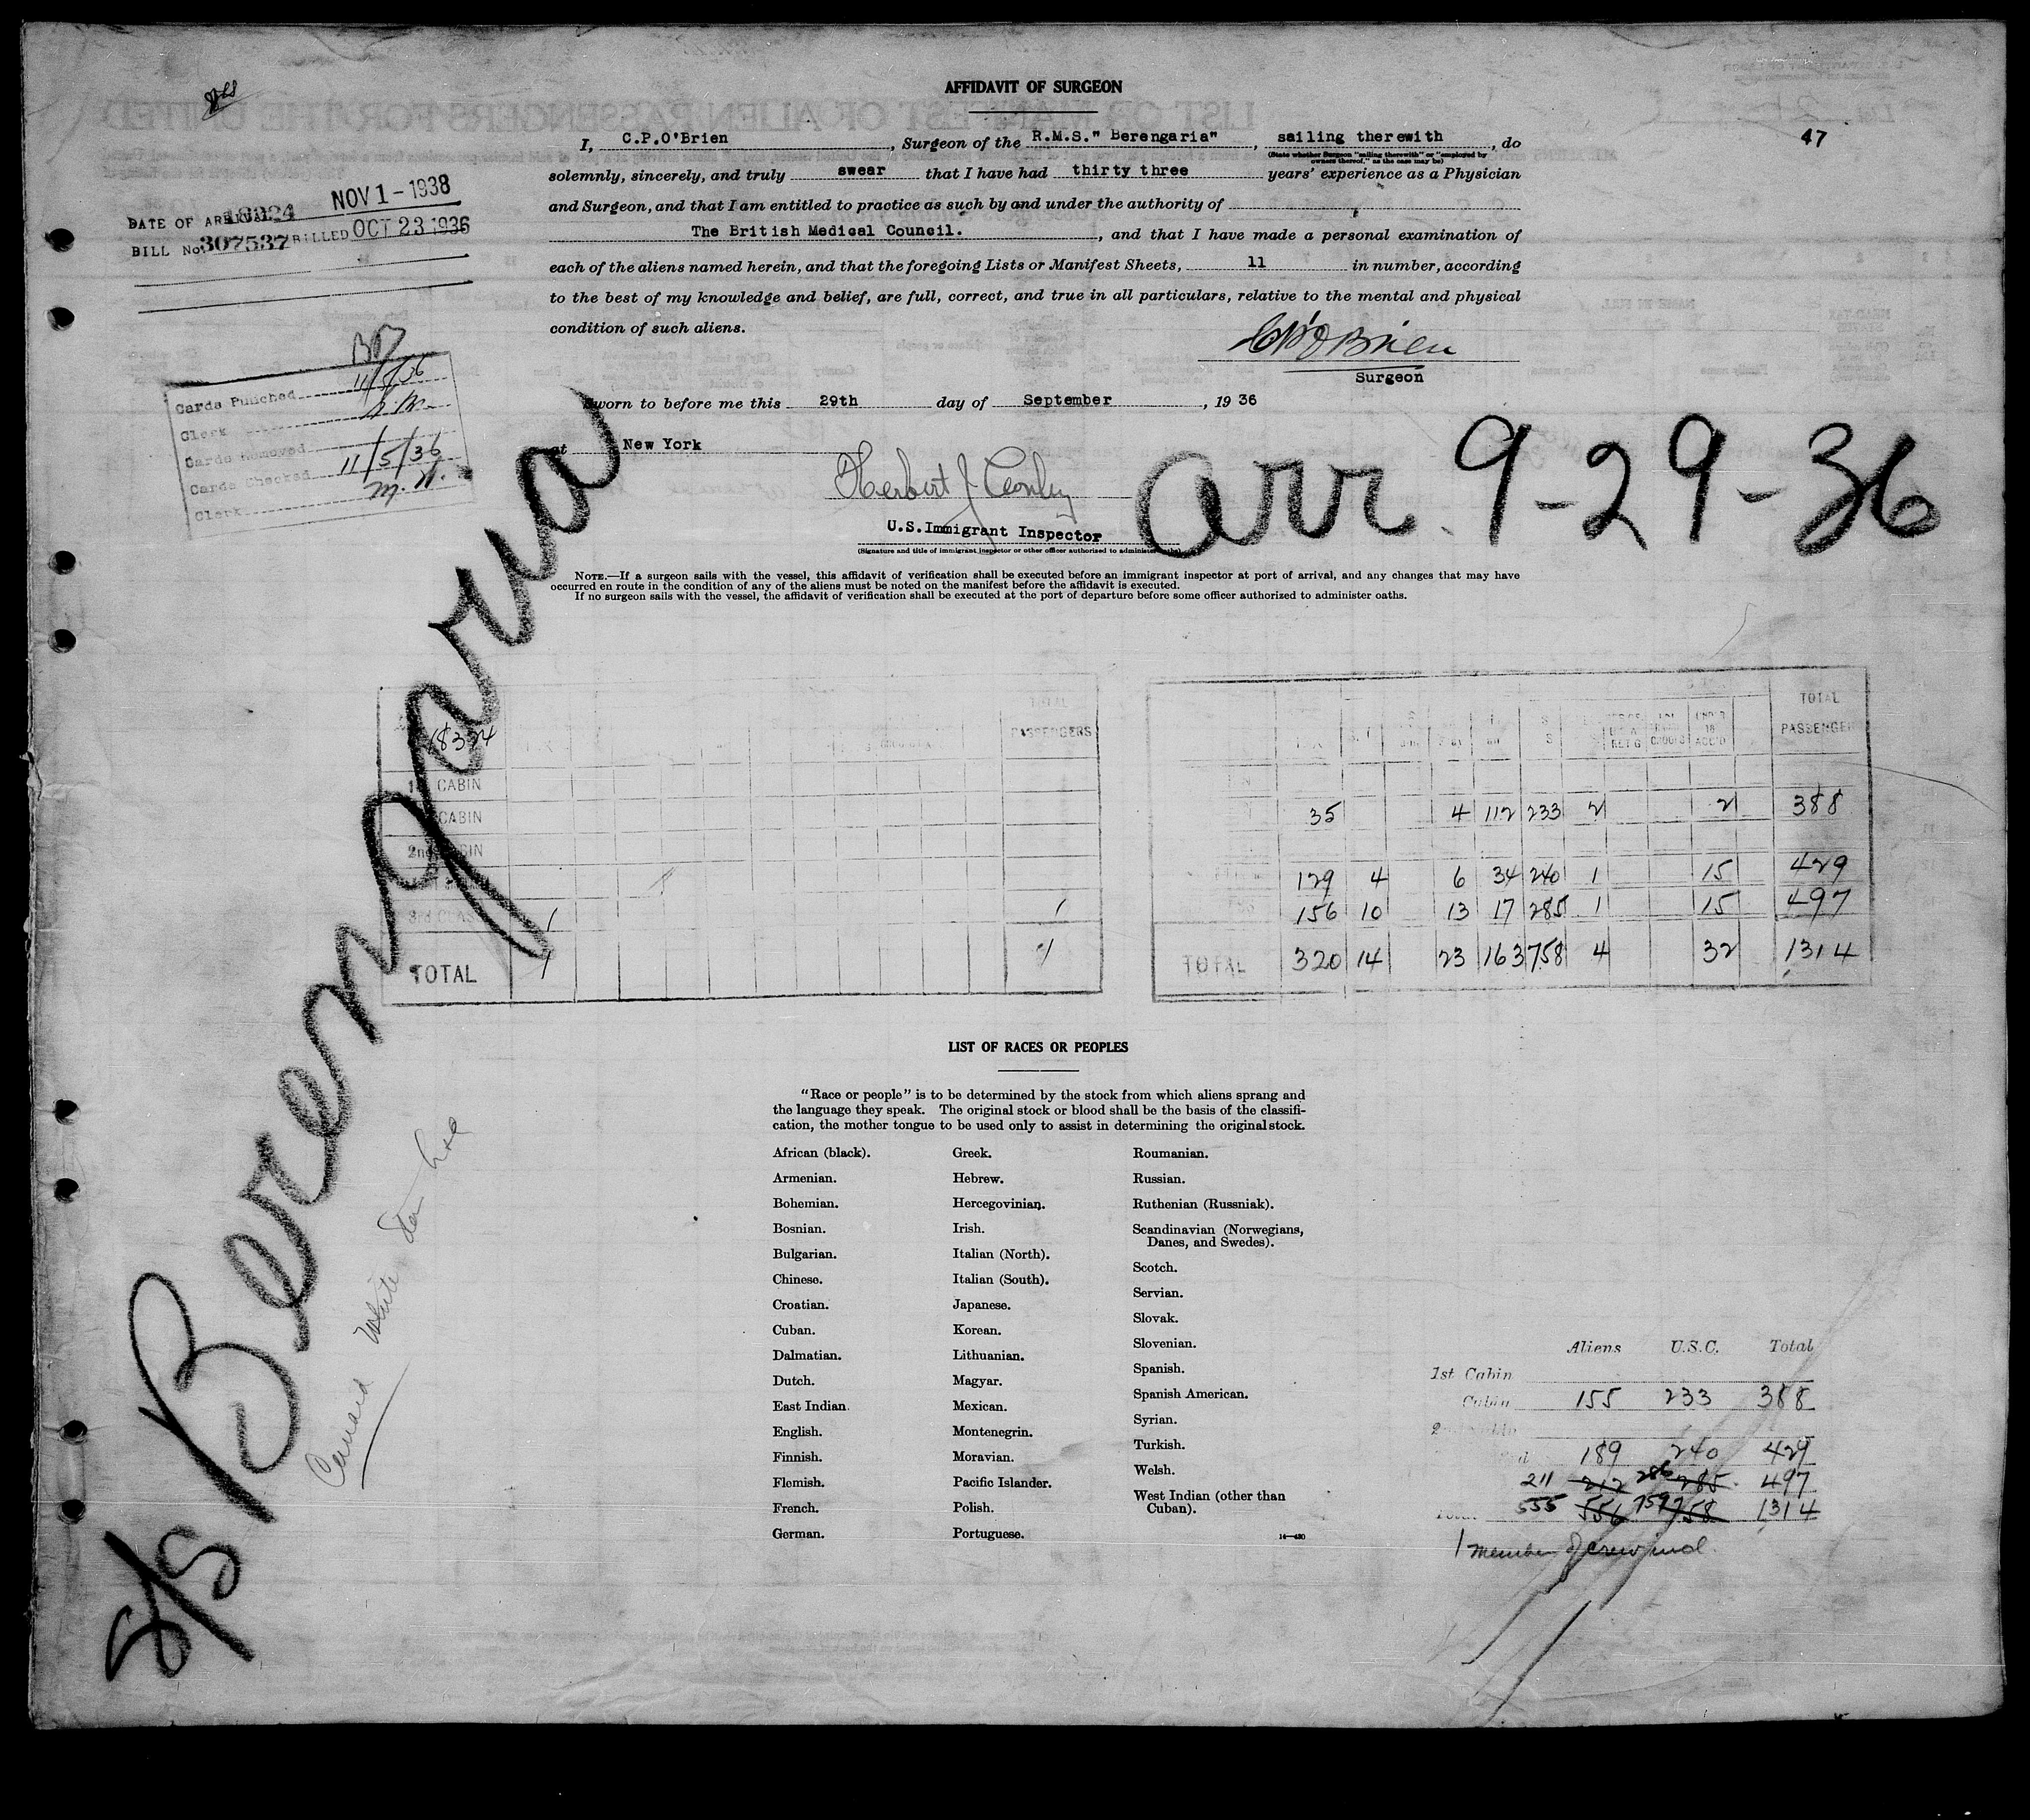 AFFIDAVIT OF SURGEON
47
I, C.P.O'Brien, Surgeon of the R.M.S." Berengaria", sailing therewith, do
(State whether Surgeon "sailing therewith" or "employed by
owners thereof," as the case may be)
solemnly, sincerely, and truly swear that I have had thirty three years' experience as a Physician
and Surgeon, and that I am entitled to practice as such by and under the authority of
The British Medical Council. , and that I have made a personal examination of
each of the aliens named herein, and that the foregoing Lists or Manifest Sheets, 11 in number, according
to the best of my knowledge and belief, are full, correct, and true in all particulars, relative to the mental and physical
condition of such aliens.
CP O'Brien
Surgeon
Sworn to before me this 29th day of September, 1936
at New York
Herbert J
U.S.Immigrant Inspector
(Signature and title of immigrant inspector or other officer authorized to administer oaths)
NOTE.—If a surgeon sails with the vessel, this affidavit of verification shall be executed before an immigrant inspector at port of arrival, and any changes that may have
occurred en route in the condition of any of the aliens must be noted on the manifest before the affidavit is executed.
If no surgeon sails with the vessel, the affidavit of verification shall be executed at the port of departure before some officer authorized to administer oaths.
NOV 1 - 1938
DATE OF ARRIVAL
BILL No. 307537 BILLED OCT 23 1936
Cards Punched 11/5/36
Clerk
Cards Removed
Cards Checked 11/5/36
Clerk M. W.
arr. 9-29-36
S/S Berengaria
Cunard White Star Line
18324
TOTAL
PASSENGERS
1st CABIN
CABIN
2nd CABIN
3rd CLASS 1 1
TOTAL 1 1
TOTAL
PASSENGER
UNDER
16
ACC'D
35 4 112 233 2 2 388
129 4 6 34 240 1 15 429
156 10 13 17 285 1 15 497
TOTAL 320 14 23 163 758 4 32 1314
LIST OF RACES OR PEOPLES
"Race or people" is to be determined by the stock from which aliens sprang and
the language they speak. The original stock or blood shall be the basis of the classifi-
cation, the mother tongue to be used only to assist in determining the original stock.
African (black).
Armenian.
Bohemian.
Bosnian.
Bulgarian.
Chinese.
Croatian.
Cuban.
Dalmatian.
Dutch.
East Indian.
English.
Finnish.
Flemish.
French.
German.
Greek.
Hebrew.
Hercegovinian.
Irish.
Italian (North).
Italian (South).
Japanese.
Korean.
Lithuanian.
Magyar.
Mexican.
Montenegrin.
Moravian.
Pacific Islander.
Polish.
Portuguese.
Roumanian.
Russian.
Ruthenian (Russniak).
Scandinavian (Norwegians,
Danes, and Swedes).
Scotch.
Servian.
Slovak.
Slovenian.
Spanish.
Spanish American.
Syrian.
Turkish.
Welsh.
West Indian (other than
Cuban).
14—430
Aliens U.S.C. Total
1st Cabin
Cabin 155 233 388
189 240 429
211 212 286 285 497
Total 555 556 759 758 1314
1 member of crew incl.